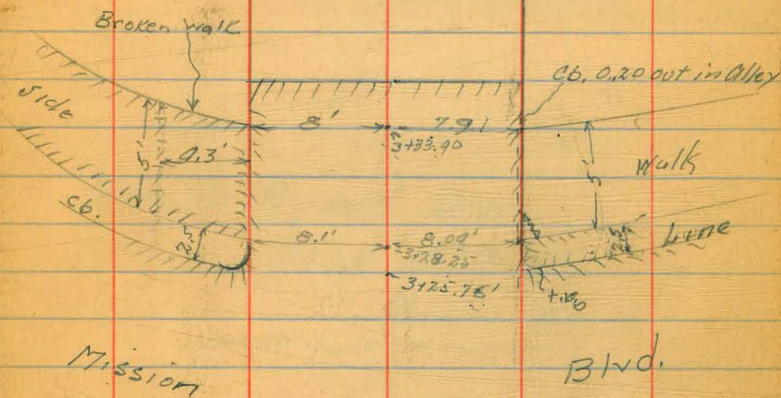 Broken Walk
Cb. 0.20 out in Alley
Side
8'
7.91
3+33.90
5'
9.3'
5'
Walk
Cb.
2.5'
8.1'
8.09'
2.5'
Line
3+28.25
3+25.75'
Mission
Blvd.